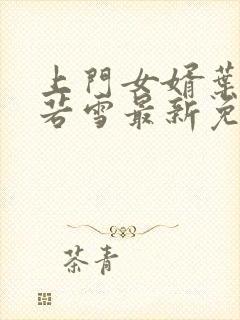 上門女婿葉
若雪最新免
茶青